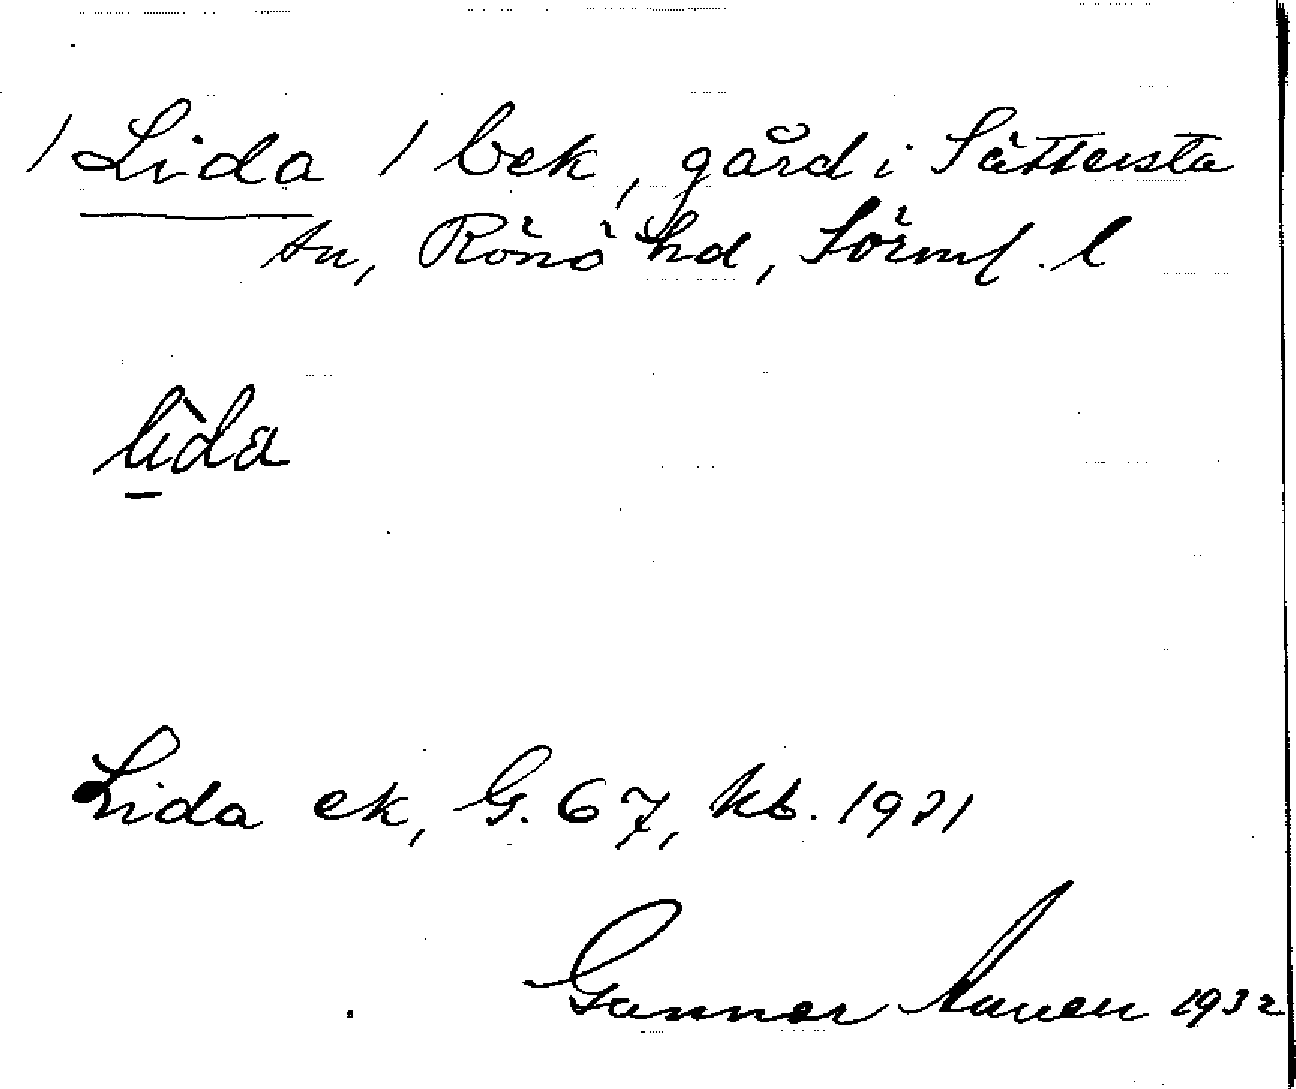 / Lida / bek, gård i Sättersta
sn, Rönö hd, Sörml. l
lìda
Lida ek, G. 67, kb. 1921
Gunnar 1932